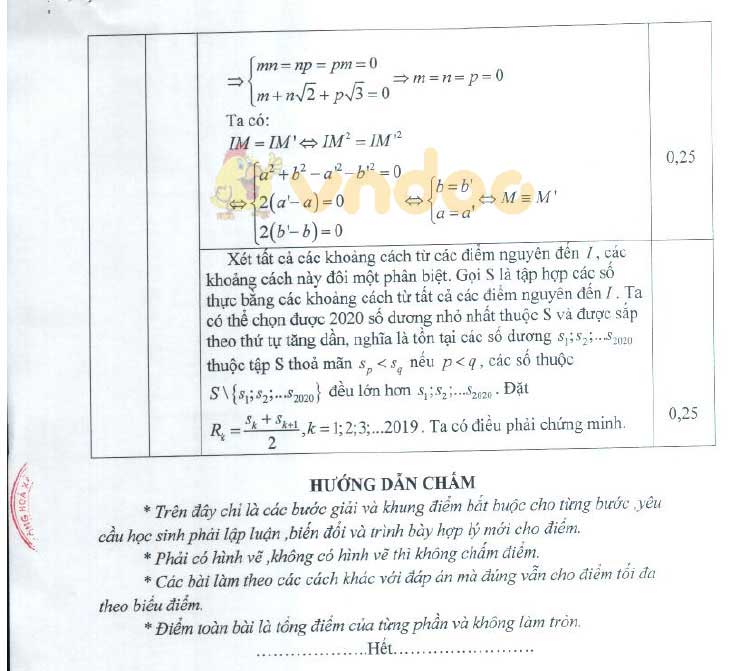 ⇒ {mn = np = pm = 0
m + n√2 + p√3 = 0 ⇒ m = n = p = 0
Ta có:
IM = IM' ⇔ IM² = IM'²
⇔ {a² + b² − a'² − b'² = 0
2(a'− a) = 0
2(b'− b) = 0 ⇔ {b = b'
a = a' ⇔ M ≡ M'
0,25
vndoc
Xét tất cả các khoảng cách từ các điểm nguyên đến I, các
khoảng cách này đôi một phân biệt. Gọi S là tập hợp các số
thực bằng các khoảng cách từ tất cả các điểm nguyên đến I. Ta
có thể chọn được 2020 số dương nhỏ nhất thuộc S và được sắp
theo thứ tự tăng dần, nghĩa là tồn tại các số dương s₁;s₂;...s₂₀₂₀
thuộc tập S thoả mãn sₚ < s_q nếu p < q, các số thuộc
S \ {s₁;s₂;...s₂₀₂₀} đều lớn hơn s₁;s₂;...s₂₀₂₀. Đặt
Rₖ = (sₖ + sₖ₊₁)/2, k = 1;2;3;...2019. Ta có điều phải chứng minh.
0,25
HƯỚNG DẪN CHẤM
* Trên đây chỉ là các bước giải và khung điểm bắt buộc cho từng bước ,yêu
cầu học sinh phải lập luận ,biến đổi và trình bày hợp lý mới cho điểm.
* Phải có hình vẽ ,không có hình vẽ thì không chấm điểm.
* Các bài làm theo các cách khác với đáp án mà đúng vẫn cho điểm tối đa
theo biểu điểm.
* Điểm toàn bài là tổng điểm của từng phần và không làm tròn.
....................Hết.........................